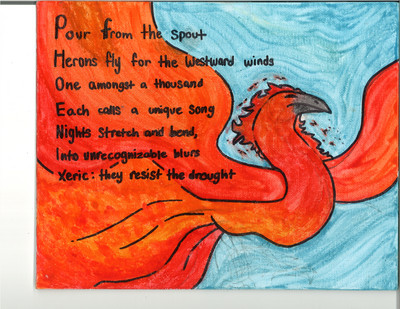 Pour from the spout
Herons fly for the Westward winds
One amongst a thousand
Each calls a unique song
Nights Stretch and bend,
Into unrecognizable blurs
Xeric: they resist the drought